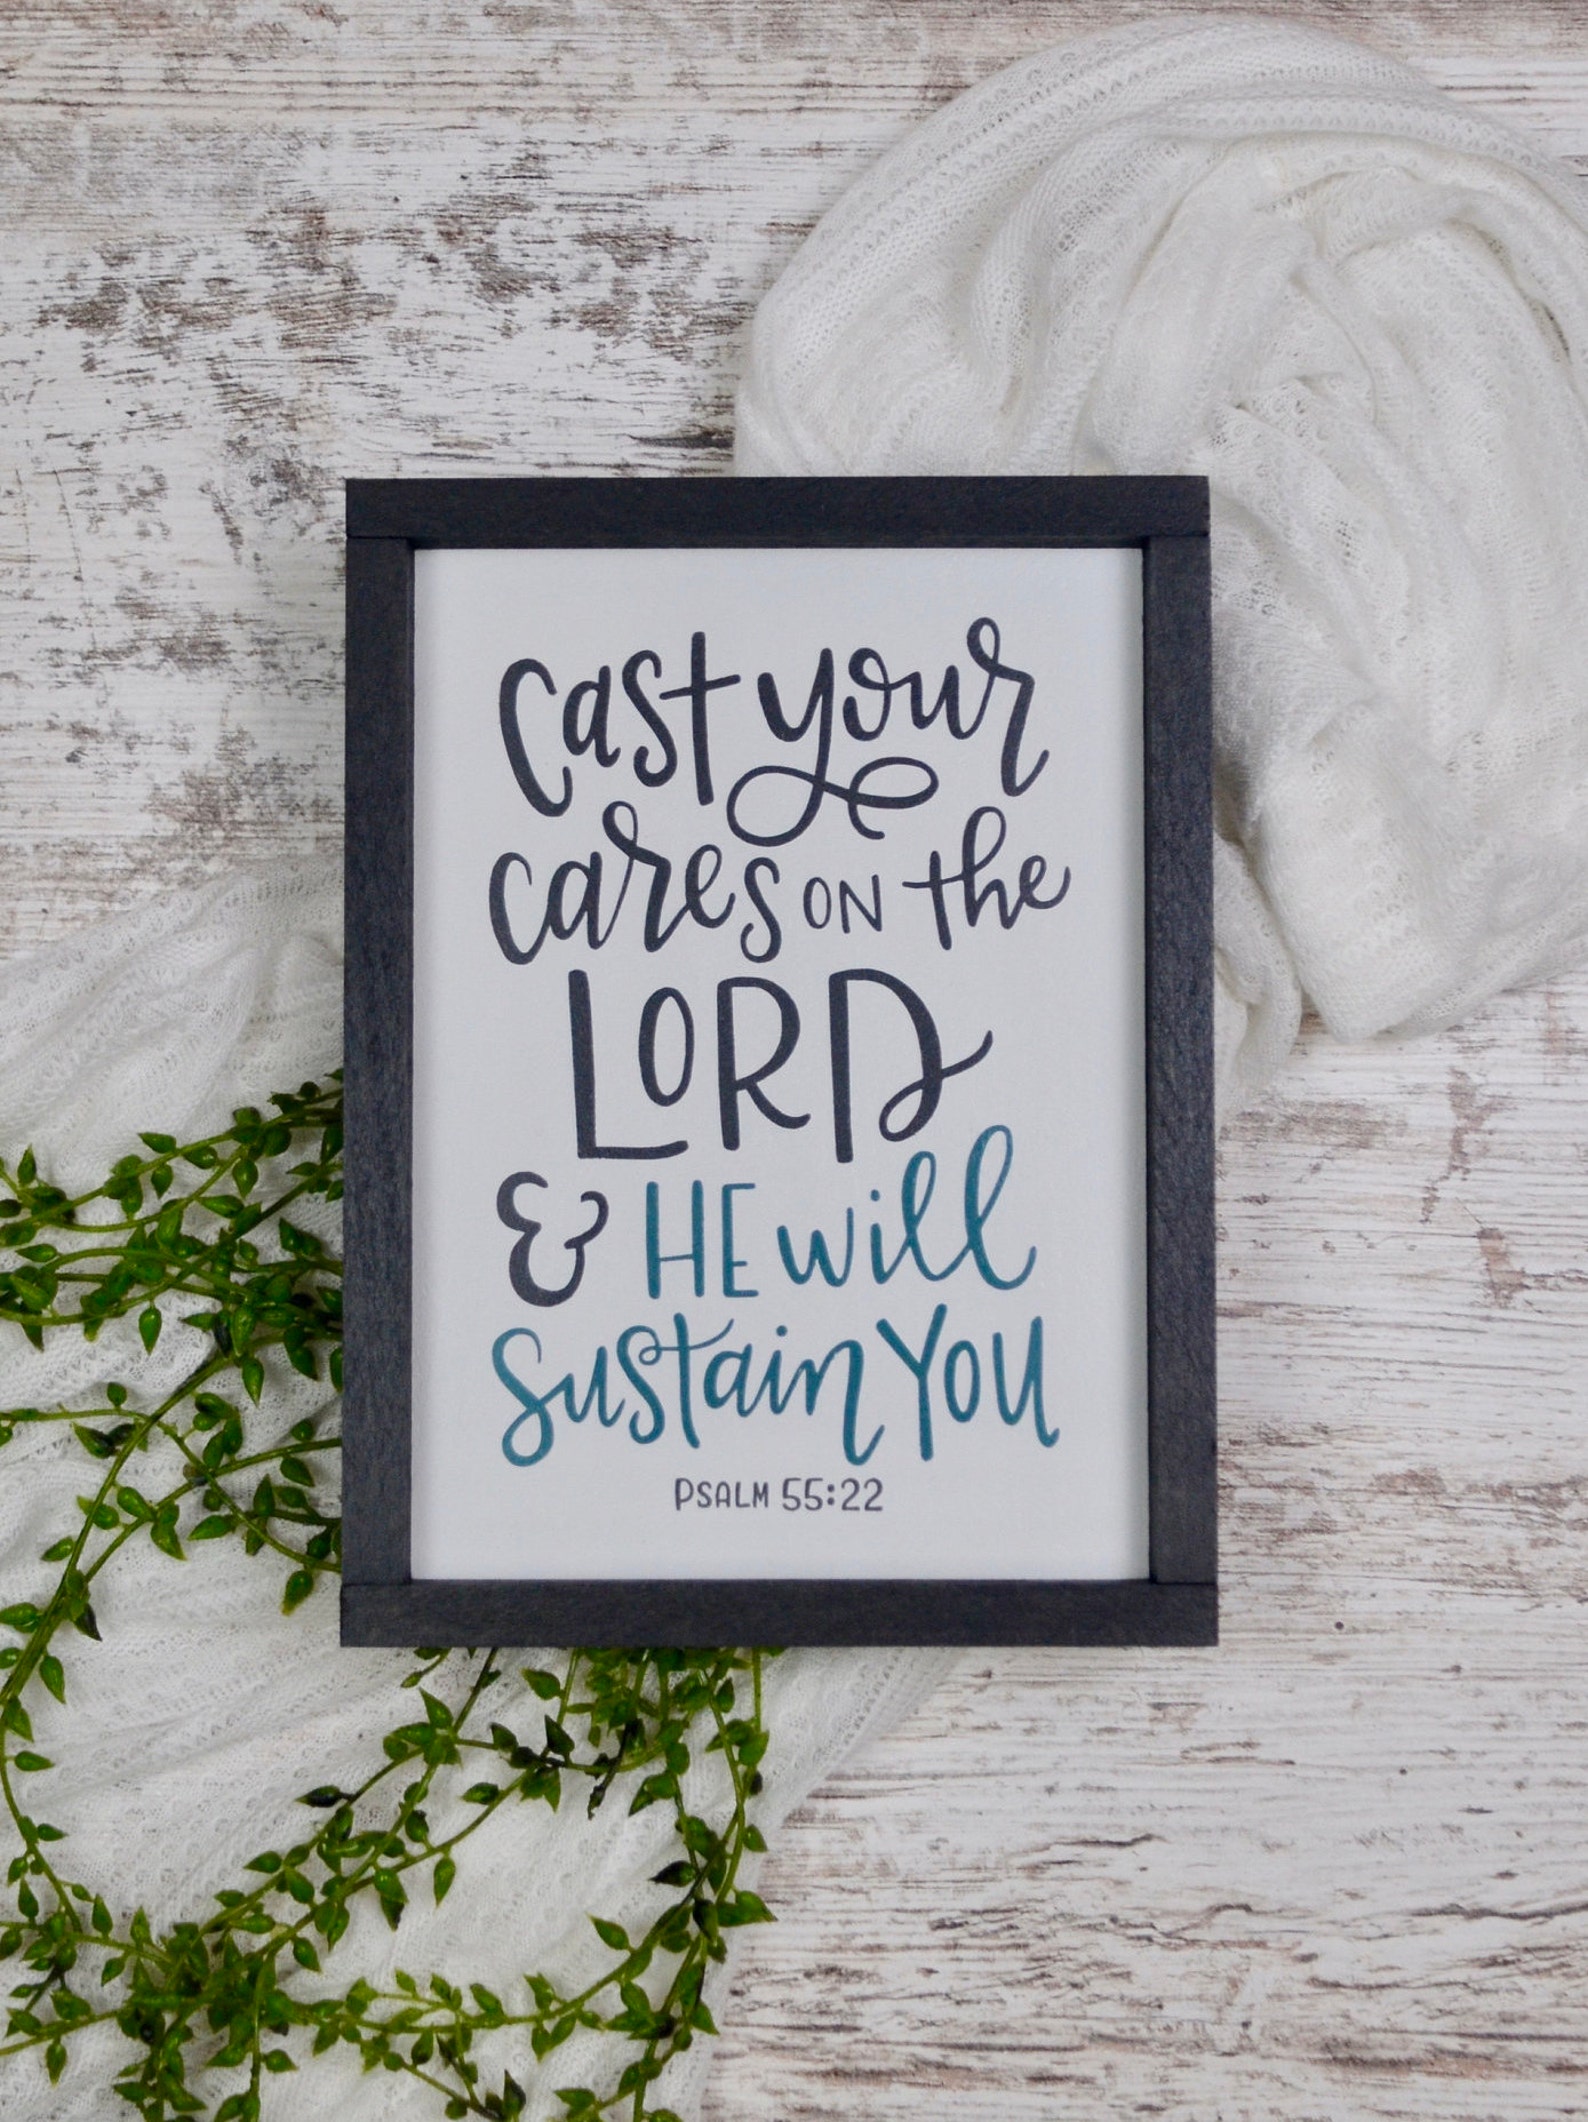 Cast your
cares ON the
LORD
& HE will
sustain YOU
PSALM 55:22